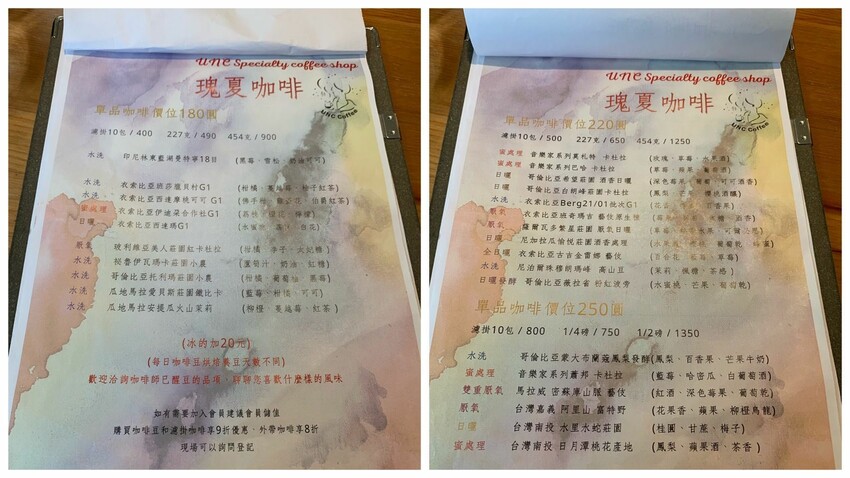 UNC Specialty coffee shop
瑰夏咖啡
UNC Coffee
單品咖啡價位180圓
濾掛10包 / 400 227克 / 490 454克 / 900
水洗 印尼林東藍湖曼特寧18目 (黑莓、雪松、奶油可可)
水洗 衣索比亞班莎瓏貝村G1 (柑橘、蔓越莓、柚子紅茶)
水洗 衣索比亞西達摩桃可可 G1 (佛手柑、伯爵紅茶)
蜜處理 衣索比亞伊迪朵合作社G1
日曬 衣索比亞西達瑪G1 (水蜜桃、白花)
厭氧 玻利維亞美人莊園紅卡杜拉 (柑橘、李子、太妃糖)
水洗 祕魯伊瓦瑪卡莊園小農 (蘆筍汁、奶油、紅糖)
水洗 哥倫比亞托利瑪莊園小農 (柑橘、葡萄柚、黑莓)
水洗 瓜地馬拉愛貝斯莊園鐵比卡 (藍莓、柑橘、可可)
水洗 瓜地馬拉安提瓜火山茉莉 (柳橙、蔓越莓、紅茶)
(冰的加20元)
(每日咖啡豆烘焙養豆天數不同)
歡迎洽詢咖啡師已醒豆的品項，聊聊您喜歡什麼樣的風味
如有需要加入會員建議會員儲值
購買咖啡豆和濾掛咖啡享9折優惠，外帶咖啡享8折
現場可以詢問登記
UNC Specialty coffee shop
瑰夏咖啡
UNC Coffee
單品咖啡價位220圓
濾掛10包 / 500 227克 / 650 454克 / 1250
蜜處理 音樂家系列莫札特 卡杜拉 (玫瑰、草莓、水果酒)
蜜處理 音樂家系列巴哈 卡杜拉 (草莓、蘋果、葡萄酒)
日曬 哥倫比亞希望莊園 酒香日曬 (深色莓果、葡萄、可可酒香)
日曬 哥倫比亞白朗峰莊園卡杜拉 (鳳梨、芒果、櫻桃酒釀)
水洗 衣索比亞Berg21/01批次G1
厭氧 衣索比亞班奇瑪吉 藝伎原生種
厭氧 薩爾瓦多繁星莊園 厭氧日曬
日曬 尼加拉瓜愉悅莊園酒香處理
全日曬 衣索比亞古吉金雷娜 藝伎
水洗 尼泊爾珠穆朗瑪峰 高山豆 (茉莉、楓糖、茶感)
日曬發酵 哥倫比亞薇拉省 粉紅波旁 (水蜜桃、芒果、葡萄乾)
單品咖啡價位250圓
濾掛10包 / 800 1/4磅 / 750 1/2磅 / 1350
水洗 哥倫比亞蒙大布蘭蔻鳳梨發酵(鳳梨、百香果、芒果牛奶)
蜜處理 音樂家系列蕭邦 卡杜拉 (藍莓、哈密瓜、白葡萄酒)
雙重厭氧 馬拉威 密蘇庫山脈 藝伎 (紅酒、深色莓果、葡萄)
厭氧 台灣嘉義 阿里山 富特野 (花果香、蘋果、柳橙烏龍)
日曬 台灣南投 水里水蛇莊園 (桂圓、甘蔗、梅子)
蜜處理 台灣南投 日月潭桃花產地 (鳳梨、蘋果酒、茶香)